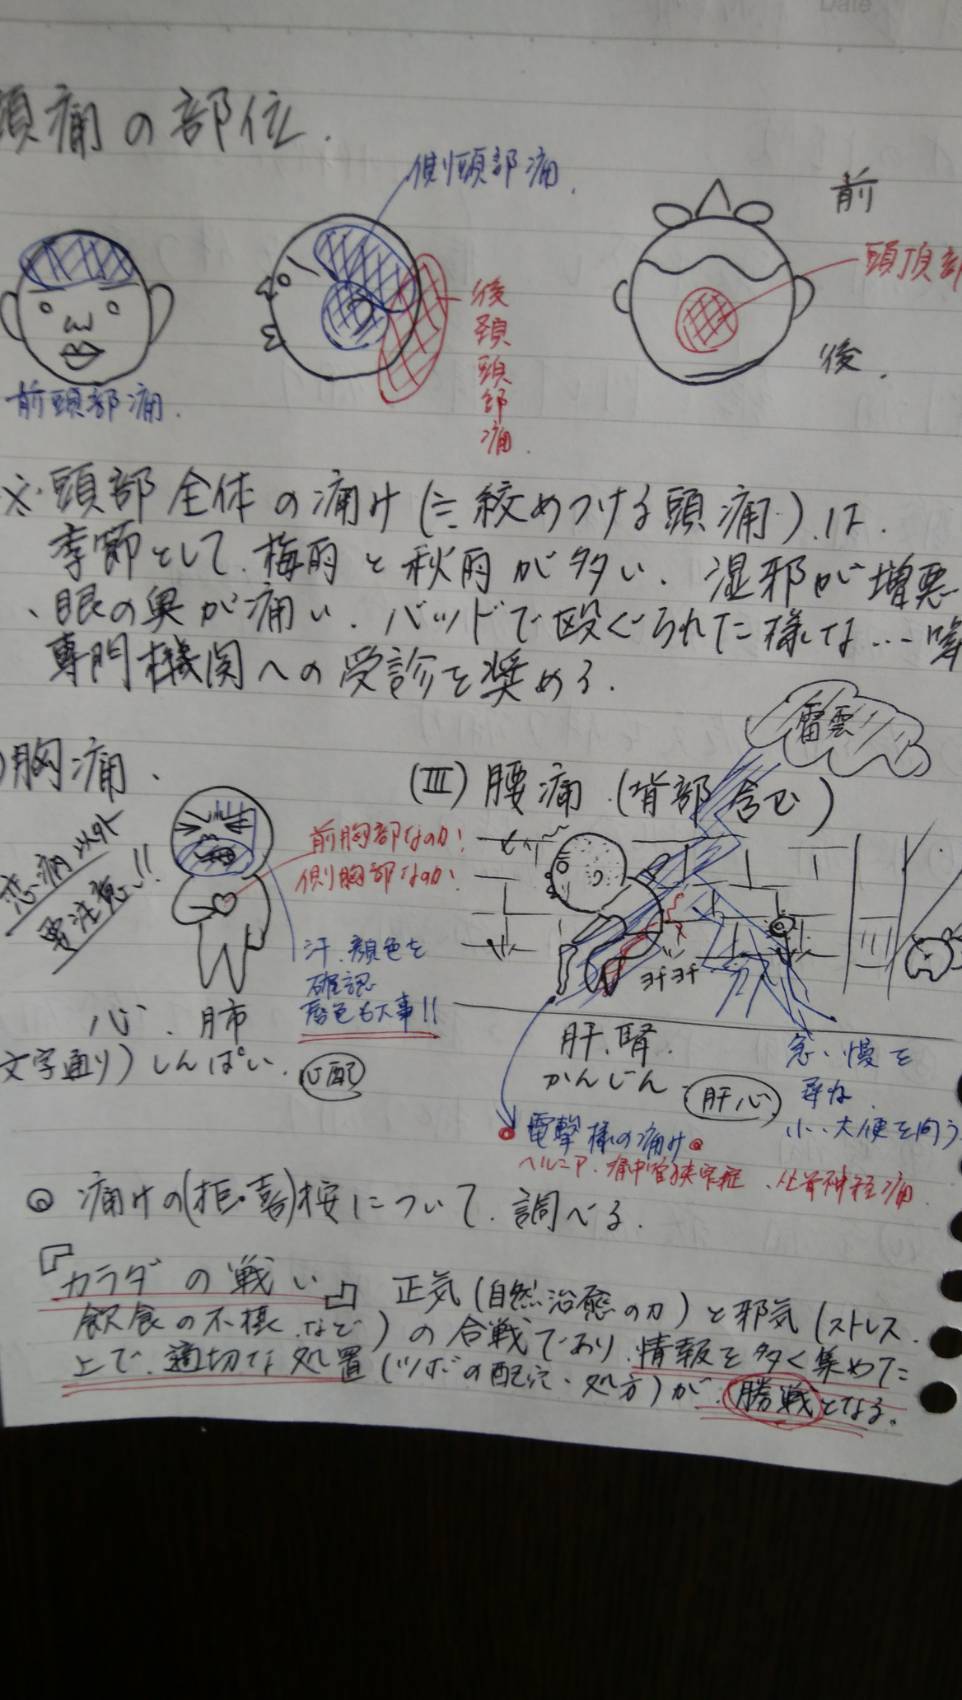 Date
頭痛の部位.
側頭部痛.
前
頭頂部
後頚頭部痛.
後.
前頭部痛.
※頭部全体の痛け(≒絞めつける頭痛).は.
季節として.梅雨と秋雨が多い.湿邪が増悪
、眼の奥が痛い.バッドで殴ぐられた様な…
専門機関への受診を奨める.
雷雲
)胸痛.
(Ⅲ)腰痛.(背部含む)
恋病以外
要注意!!
前胸部なのか!
側胸部なのか.
汗.顔色を
確認
唇色も大事!!
ヨチヨチ
心.肺
文字通り)しんぱい.
心配
肝.腎.
かんじん
肝心
急.慢を
尋ね.
小.大便を伺う
電撃様の痛け
ヘルニア.脊中管狭窄症.坐骨神経痛.
痛けの(拒・喜)按について.調べる.
『カラダの戦い』正気(自然治癒の力)と邪気(ストレス.
飲食の不摂.など)の合戦であり.情報を多く集めた
上で.適切な処置(ツボの配穴・処方)が.勝戦となる.